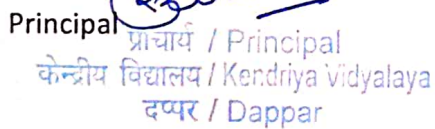 Principal
प्राचार्य / Principal
केन्द्रीय विद्यालय / Kendriya Vidyalaya
दप्पर / Dappar